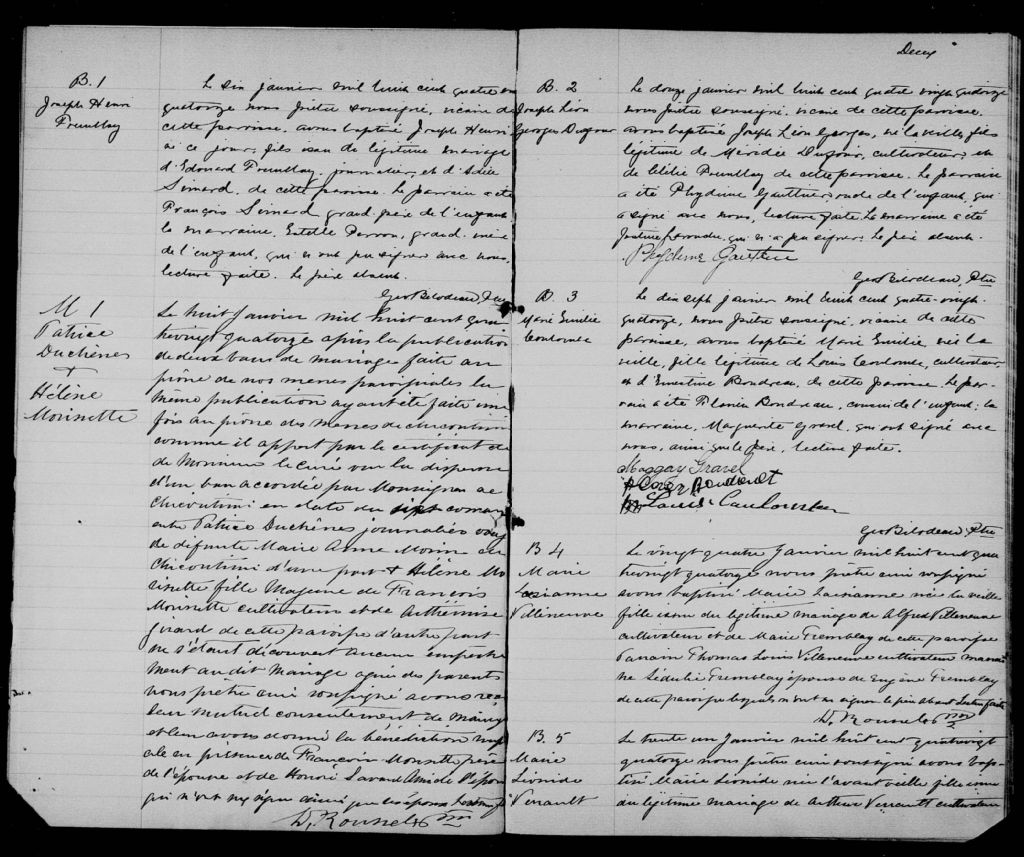 B. 1
Joseph Henri
Tremblay
Le six janvier mil huit cent quatre vingt
quatorze nous prêtre soussigné, vicaire de
cette paroisse, avons baptisé Joseph Henri
né ce jour, fils issu de légitime mariage
d'Edouard Tremblay, journalier, et d'Adèle
Simard, de cette paroisse. Le parrain a été
François Simard grand-père de l'enfant,
la marraine, Estelle Perron, grand-mère
de l'enfant, qui n'ont pu signer avec nous,
lecture faite. Le père absent.
Geo Bilodeau, Ptre
M 1
Patrice
Duchènes
+
Hélène
Morissette
Le huit janvier mil huit cent qua
trevingt quatorze après la publication
de deux bans de mariage faite au
prône de nos messes paroissiales la
même publication ayant été faite une
fois au prône des messes de chicoutimi
comme il appert par le certificat de
de Monsieur le curé vu la dispense
d'un ban accordée par Monseigneur de
Chicoutimi en date du sept courant
entre Patrice Duchènes journalier veuf
de défunte Marie Anne Morin de
Chicoutimi d'une part & Hélène Mo
rissette fille Majeure de François
Morissette cultivateur et de Arthémise
Girard de cette paroisse d'autre part
ne s'étant découvert aucun empêche
ment au dit Mariage agréé des parents
nous prêtre curé soussigné avons reçu
leur mutuel consentement de mariage
et leur avons donné la bénédiction nupti
ale en présence de François Morissette père
de l'épouse et de Honoré Savard Ami de l'époux
qui n'ont su signer ainsi que les époux
D. Roussel
Deux
B. 2
Joseph Léon
Georges Dufour
Le douze janvier mil huit cent quatre vingt quatorze
nous prêtre soussigné, vicaire de cette paroisse,
avons baptisé Joseph Léon Georges, né la veille, fils
légitime de Méridée Dufour, cultivateur, et
de Clélie Tremblay de cette paroisse. Le parrain
a été Phydime Gauthier, oncle de l'enfant, qui
a signé avec nous, lecture faite. La marraine a été
qui n'a pu signer. Le père absent.
Phydime Gautier
Geo Bilodeau, Ptre
B. 3
Marie Emilie
Coulombe
Le dix sept janvier mil huit cent quatre-vingt-
quatorze, nous prêtre soussigné, vicaire de cette
paroisse, avons baptisé Marie Emilie, née la
veille, fille légitime de Louis Coulombe, cultivateur,
et d'Ernestine Boudreau, de cette paroisse. Le par-
rain a été Boudreau, cousin de l'enfant; la
marraine, Marguerite Gravel, qui ont signé avec
nous, ainsi que le père, lecture faite.
Maggay Gravel
Louis Coulombe
Geo Bilodeau, Ptre
B 4
Marie
Lausianne
Villeneuve
Le vingt quatre janvier mil huit cent qua
trevingt quatorze nous prêtre curé soussigné
avons baptisé Marie Lausianne née la veille
fille issue du légitime mariage de Alfred Villeneuve
cultivateur et de Marie Tremblay de cette paroisse
Parrain Thomas Louis Villeneuve cultivateur marrai
ne Sédulie Tremblay épouse de Eugène Tremblay
de cette paroisse lesquels n'ont su signer le père absent Lecture faite
D. Roussel
B. 5
Marie
Léonide
Verrault
Le trente un Janvier mil huit cent quatrevingt
quatorze nous prêtre curé soussigné avons bap-
tisé Marie Léonide née l'avant veille fille issue
du légitime mariage de Arthur Verrault cultivateur